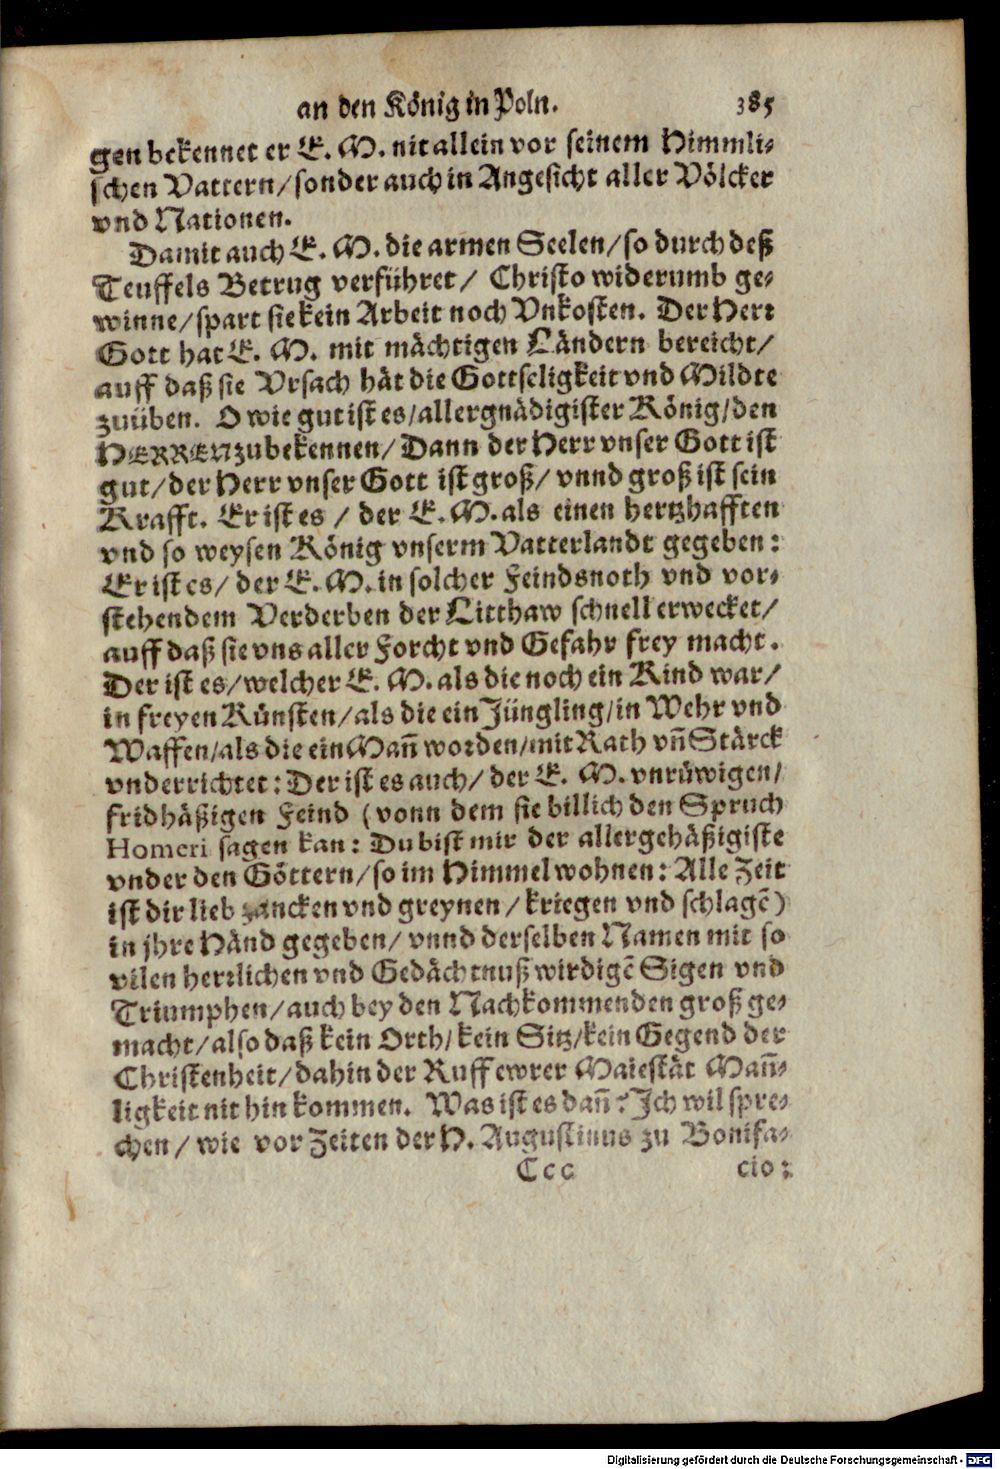 an den König in Poln. 385
gen bekennet er E. M. nit allein vor seinem Himmli-
schen Vattern/ sonder auch in Angesicht aller Völcker
vnd Nationen.
Damit auch E. M. die armen Seelen/ so durch deß
Teuffels Betrug verführet/ Christo widerumb ge-
winne/ spart sie kein Arbeit noch Vnkosten. Der Herr
Gott hat E. M. mit mächtigen Ländern bereicht/
auff daß sie Vrsach hät die Gottseligkeit vnd Mildte
zuüben. O wie gut ist es/ allergnädigister König/ den
HERREN zubekennen/ Dann der Herr vnser Gott ist
gut/ der Herr vnser Gott ist groß/ vnnd groß ist sein
Krafft. Er ist es / der E. M. als einen hertzhafften
vnd so weysen König vnserm Vatterlandt gegeben:
Er ist es/ der E. M. in solcher Feindsnoth vnd vor-
stehendem Verderben der Litthaw schnell erwecket/
auff daß sie vns aller Forcht vnd Gefahr frey macht.
Der ist es/ welcher E. M. als die noch ein Kind war/
in freyen Künsten/ als die ein Jüngling/ in Wehr vnd
Waffen/ als die ein Mañ worden/ mit Rath vñ Stärck
vnderrichtet: Der ist es auch/ der E. M. vnrüwigen/
fridhäßigen Feind (vonn dem sie billich den Spruch
Homeri sagen kan: Du bist mir der allergehäßigiste
vnder den Göttern/ so im Himmel wohnen: Alle Zeit
ist dir lieb zancken vnd greynen / kriegen vnd schlagẽ)
in jhre Händ gegeben/ vnnd derselben Namen mit so
vilen herrlichen vnd Gedächtnuß wirdigẽ Sigen vnd
Triumphen/ auch bey den Nachkommenden groß ge-
macht/ also daß kein Orth/ kein Sitz/ kein Gegend der
Christenheit/ dahin der Ruff ewrer Maiestät Mañ-
ligkeit nit hin kommen. Was ist es dañ? Ich wil spre-
chen/ wie vor Zeiten der H. Augustinus zu Bonifa-
Ccc cio:
Digitalisierung gefördert durch die Deutsche Forschungsgemeinschaft - DFG